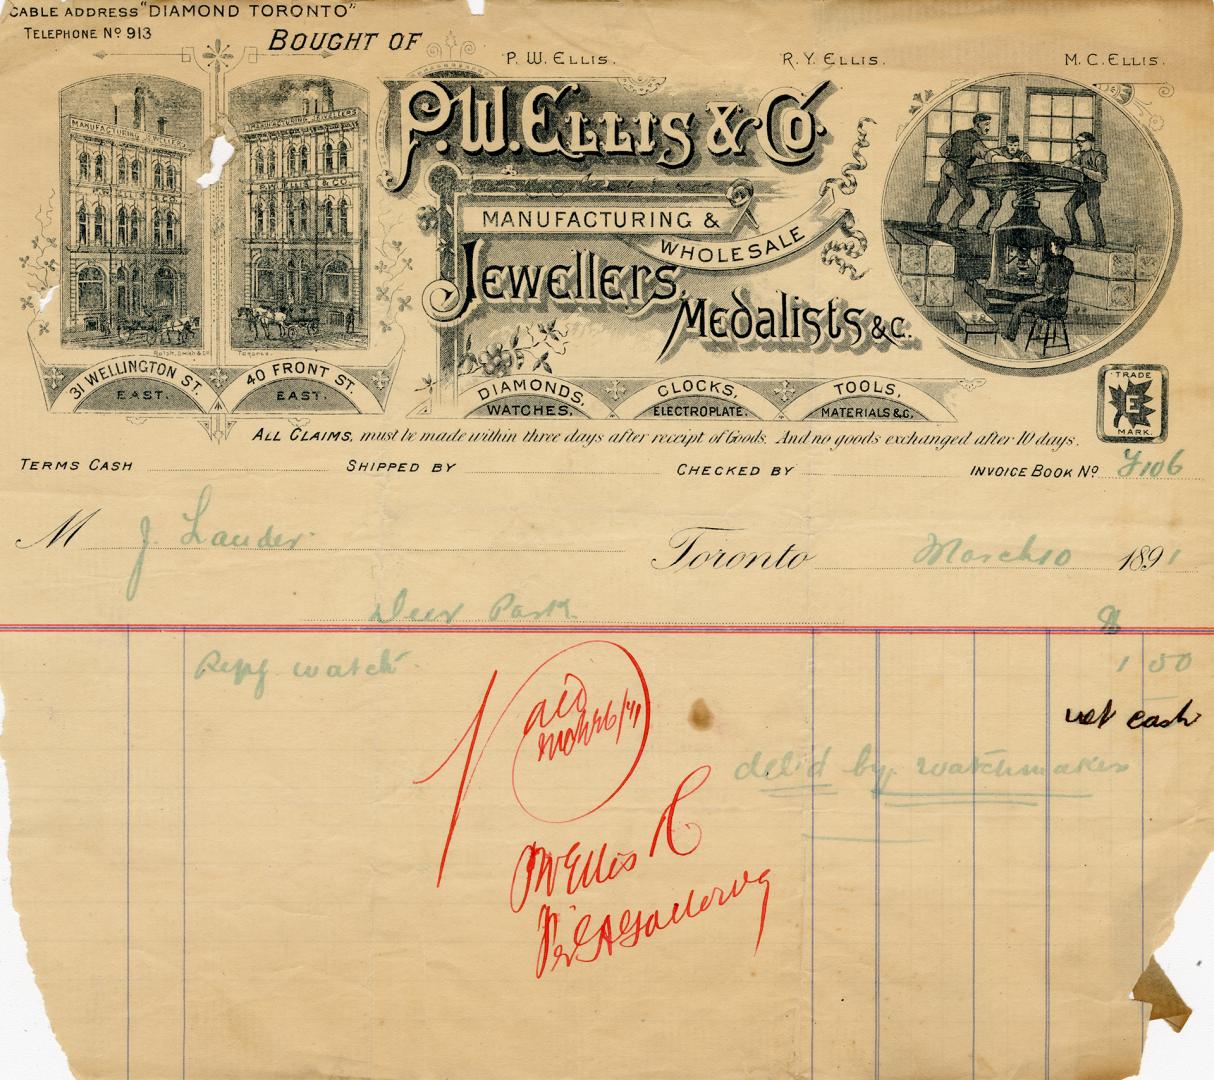 CABLE ADDRESS "DIAMOND TORONTO"
TELEPHONE No 913
BOUGHT OF
P. W. ELLIS. R. Y. ELLIS. M. C. ELLIS.
P. W. ELLIS & Co.
MANUFACTURING JEWELLERS
MANUFACTURING JEWELLERS
P. W. ELLIS & CO.
MANUFACTURING & WHOLESALE
JEWELLERS,
MEDALISTS & C.
Rolph, Smith & Co Toronto.
31 WELLINGTON ST. EAST.
40 FRONT ST. EAST.
DIAMONDS, WATCHES,
CLOCKS, ELECTROPLATE,
TOOLS, MATERIALS &C,
TRADE
E
MARK.
ALL CLAIMS, must be made within three days after receipt of Goods. And no goods exchanged after 10 days.
TERMS CASH SHIPPED BY CHECKED BY INVOICE BOOK No 7106
M J. Lauder
Toronto March 10 1891
Deer Park $
Repg watch 1 50
net cash
Paid
del'd by watchmaker
PW Ellis & Co
Per